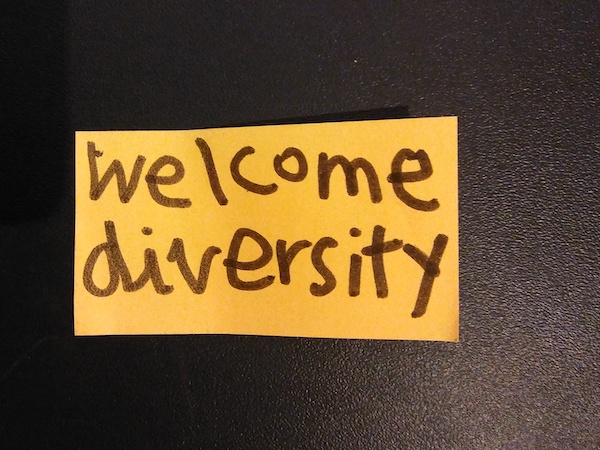 welcome
diversity